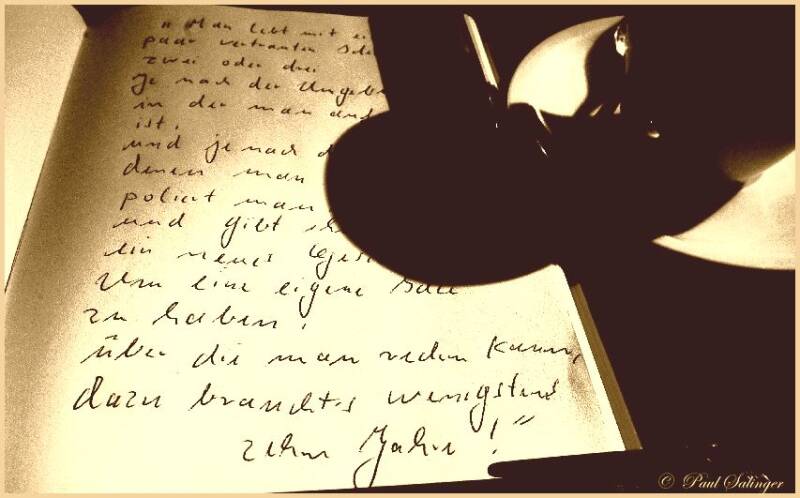 „Man lebt mit ei
paar vertrauten Ide
zwei oder drei
je nach der Umgeb
in der man
ist,
und je nach d
denen man
poliert man
und gibt ih
ein neues Ges
Um eine eigene Idee
zu haben,
über die man reden kann,
dazu braucht's wenigstens
zehn Jahre!"
© Paul Salinger